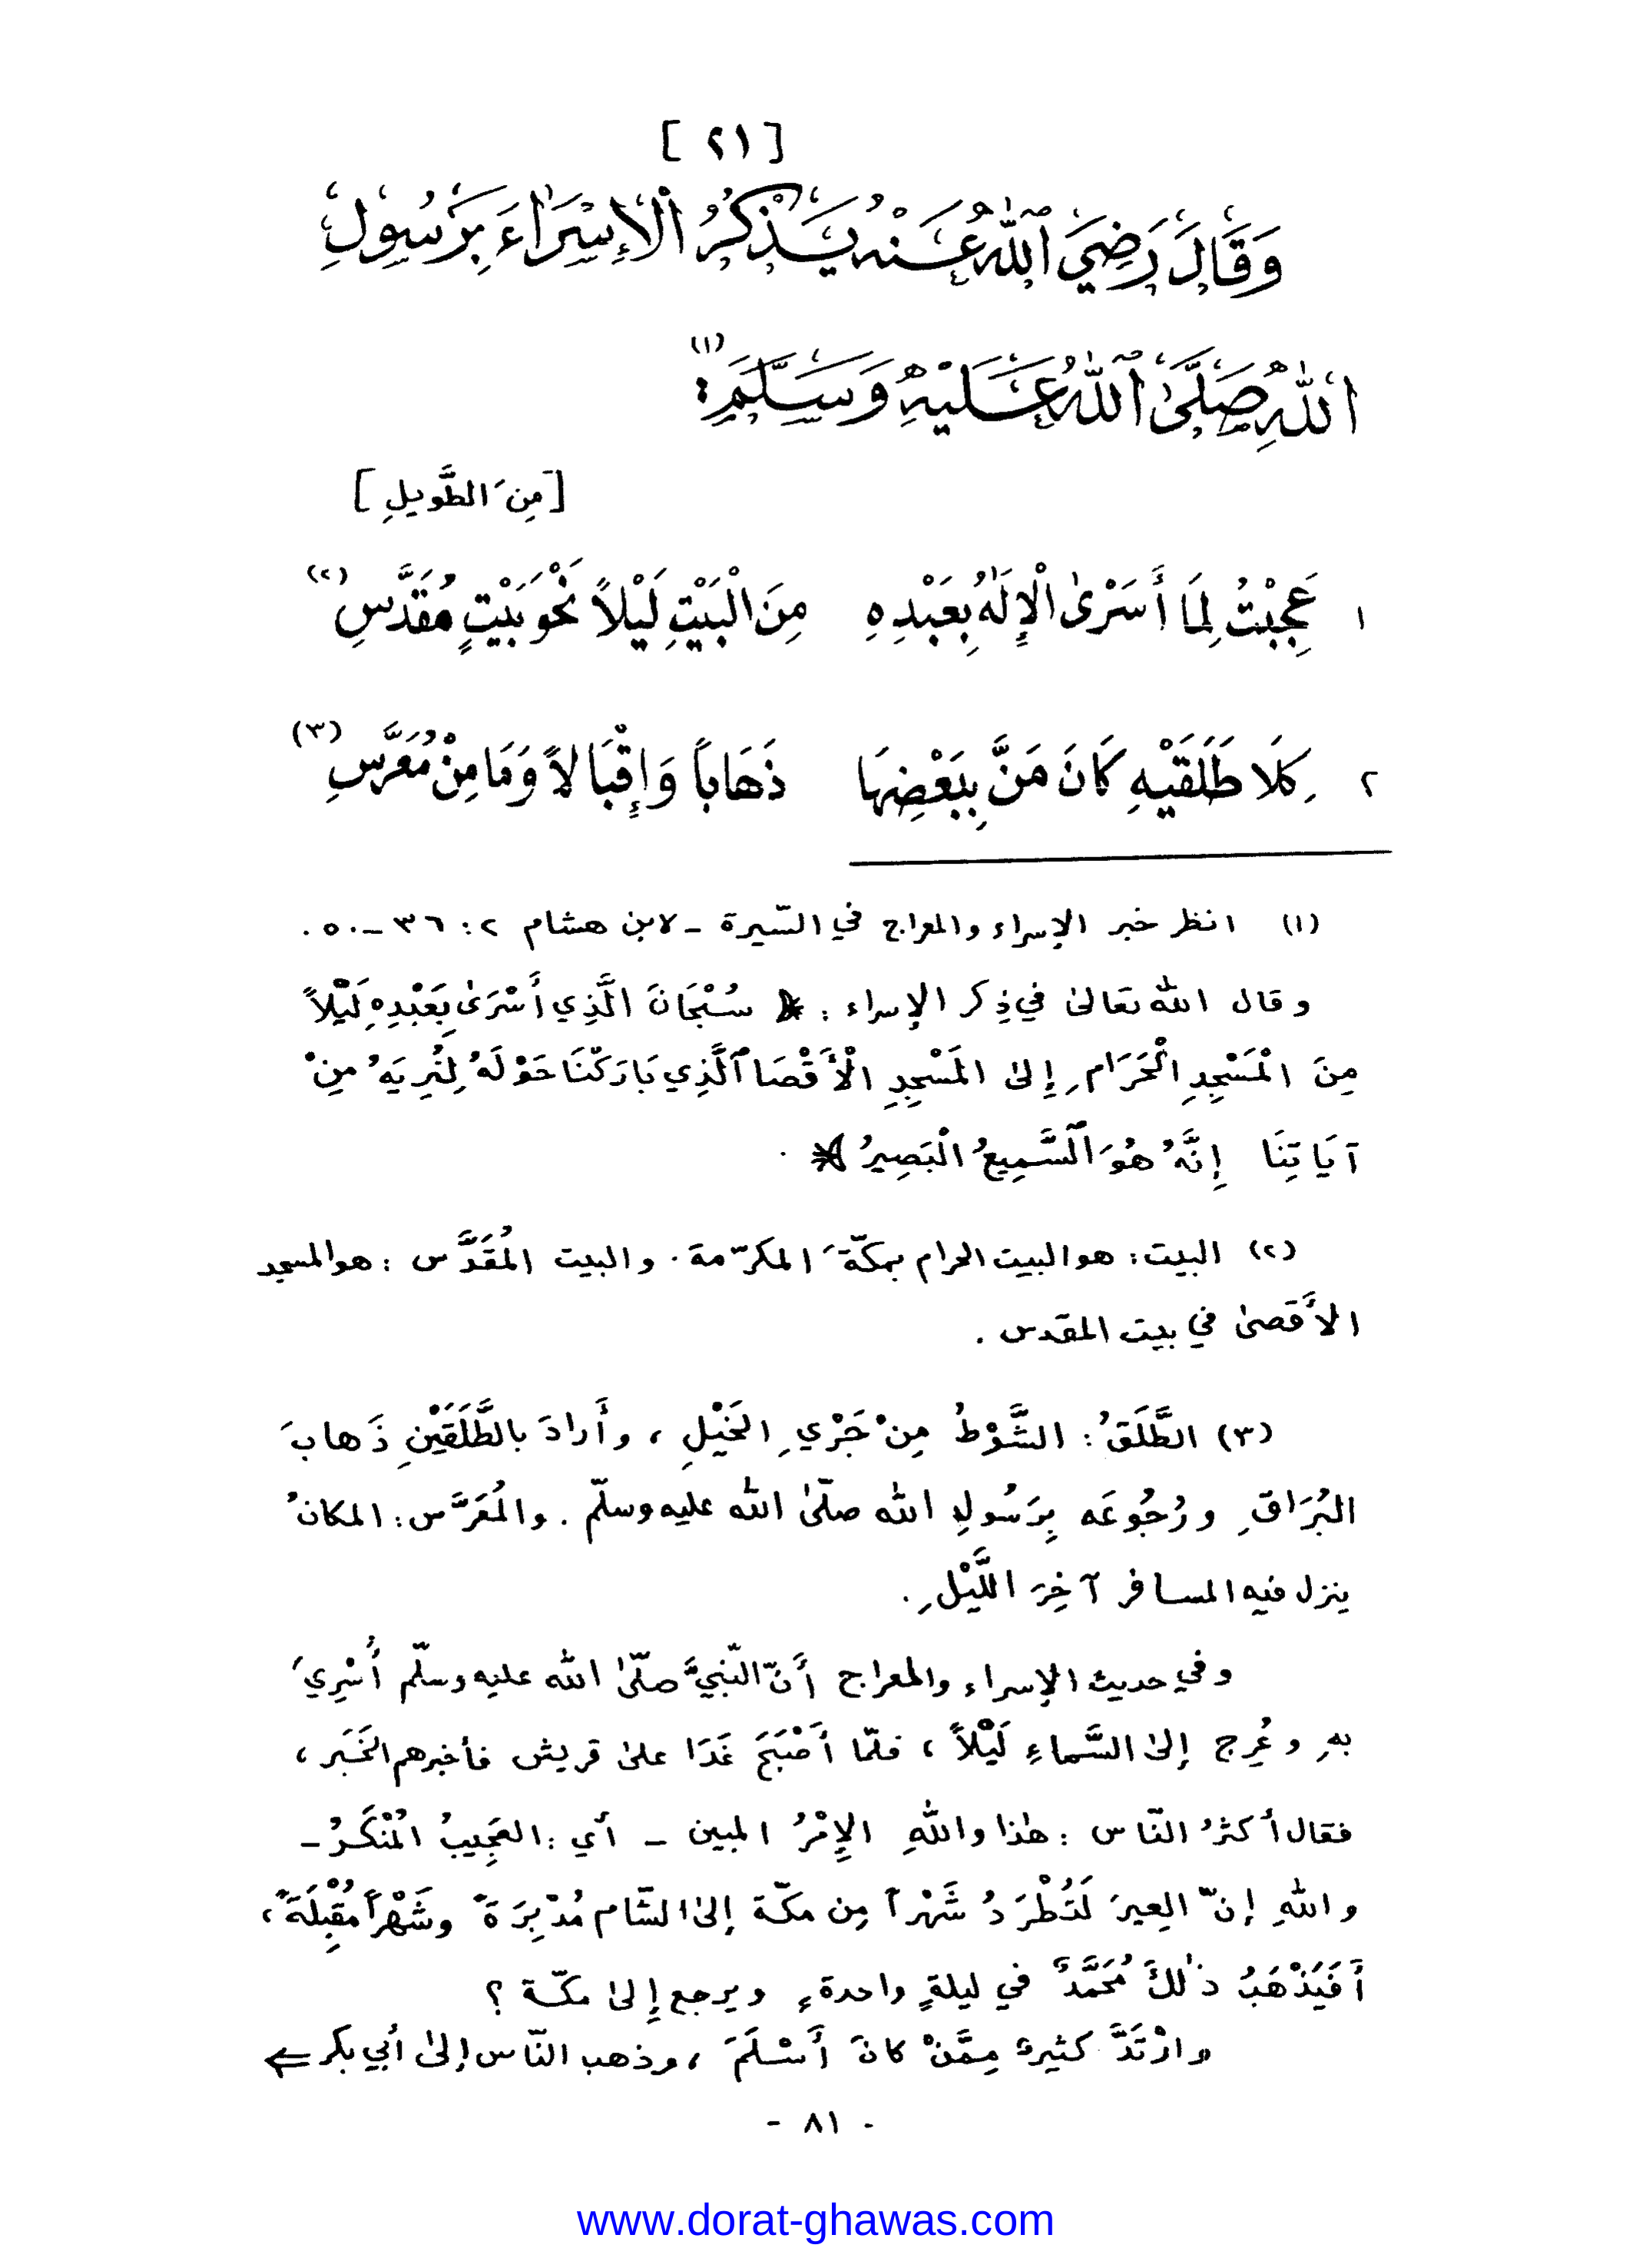 [ ٢١ ]
وَقَالَ رَضِيَ ٱللهُ عَنْهُ يَذْكُرُ الْإِسْرَاءَ بِرَسُولِ
اللهِ صَلَّىٰ ٱللهُ عَلَيْهِ وَسَلَّمَ(١):
[مِنَ الطَّوِيلِ]
١ عَجِبْتُ لِمَا أَسْرَىٰ الْإِلَٰهُ بِعَبْدِهِ مِنَ الْبَيْتِ لَيْلاً نَحْوَ بَيْتٍ مُقَدَّسِ(٢)
٢ كِلَا طَلَقَيْهِ كَانَ مَنَّ بِبَعْضِهَا ذَهَاباً وَإِقْبَالاً وَمَا مِنْ مُعَرَّسِ(٣)
(١) انظر خبر الإسراء والمعراج في السّيرة - لابن هشام ٢: ٣٦-٥٠.
وقال اللهُ تعَالىٰ في ذِكر الإسراء: ﴿ سُبْحَانَ الَّذِي أَسْرَىٰ بِعَبْدِهِ لَيْلاً
مِنَ الْمَسْجِدِ الْحَرَامِ إِلىٰ المَسْجِدِ الْأَقْصَا ٱلَّذِي بَارَكْنَا حَوْلَهُ لِنُرِيَهُ مِنْ
آيَاتِنَا إِنَّهُ هُوَ ٱلسَّمِيعُ الْبَصِيرُ ﴾.
(٢) البيت: هو البيت الحرام بمكّةَ المكرّمة. والبيت المُقَدَّس: هو المسجد
الأَقصىٰ في بيت المقدس.
(٣) الطَّلَقُ: الشَّوْطُ مِنْ جَرْيِ الخَيْلِ، وأَرادَ بالطَّلَقَيْنِ ذَهابَ
البُرَاقِ ورُجُوعَه بِرَسُولِ الله صلّىٰ الله عليه وسلّم. والمُعَرَّس: المكانُ
ينزل فيه المسافر آخِرَ اللَّيْلِ.
وفي حديث الإسراء والمعراج أَنّ النّبيَّ صلّىٰ الله عليه وسلّم أُسْرِيَ
بهِ وعُرِج إلىٰ السَّماءِ لَيْلاً، فلمّا أَصْبَحَ غَدَا علىٰ قريش فأخبرهم الخَبَر،
فقال أكثرُ النّاس: هٰذا واللهِ الإِمْرُ المبين - أي: العَجِيبُ المُنْكَرُ -
واللهِ إنّ العِيرَ لَتُطْرَدُ شَهْراً مِن مكّة إلىٰ الشّام مُدْبِرَةً وشَهْراً مُقْبِلَةً،
أَفَيَذْهَبُ ذٰلكَ مُحَمَّدٌ في ليلةٍ واحدةٍ ويرجع إِلىٰ مكّة؟
وارْتَدَّ كثيرٌ مِمَّنْ كانَ أَسْلَمَ، وذهب النّاس إلىٰ أبي بكر ⇐
- ٨١ -
www.dorat-ghawas.com